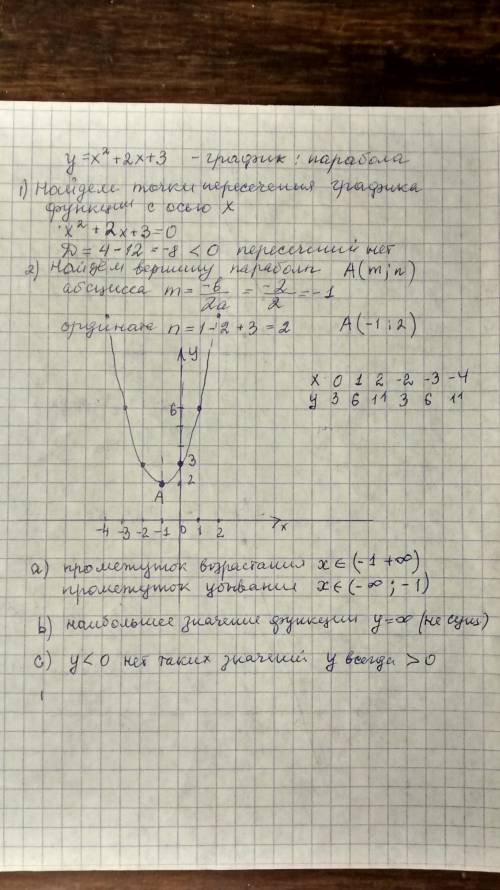 y = x² + 2x + 3 - график: парабола
1) Найдем точки пересечения графика
функции с осью x
x² + 2x + 3 = 0
D = 4 - 12 = -8 < 0 пересечений нет
2) Найдём вершину параболы A(m; n)
абсцисса m = -b/2a = -2/2 = -1
ордината n = 1 - 2 + 3 = 2 A(-1; 2)
y
x 0 1 2 -2 -3 -4
y 3 6 11 3 6 11
6
3
2
A
-4 -3 -2 -1 0 1 2 x
a) прометуток возрастания x ∈ (-1 +∞)
прометуток убывания x ∈ (-∞; -1)
b) наибольшее значение функции y = ∞ (не сущ)
c) y < 0 нет таких значений y всегда > 0